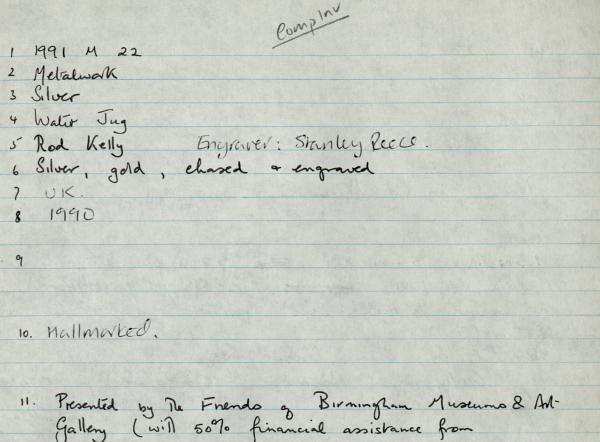 Comp Inv
1 1991 M 22
2 Metalwork
3 Silver
4 Water Jug
5 Rod Kelly Engraver: Stanley Reece.
6 Silver, gold, chased & engraved
7 UK.
8 1990
9
10. Hallmarked.
11. Presented by The Friends of Birmingham Museums & Art
Gallery (with 50% financial assistance from